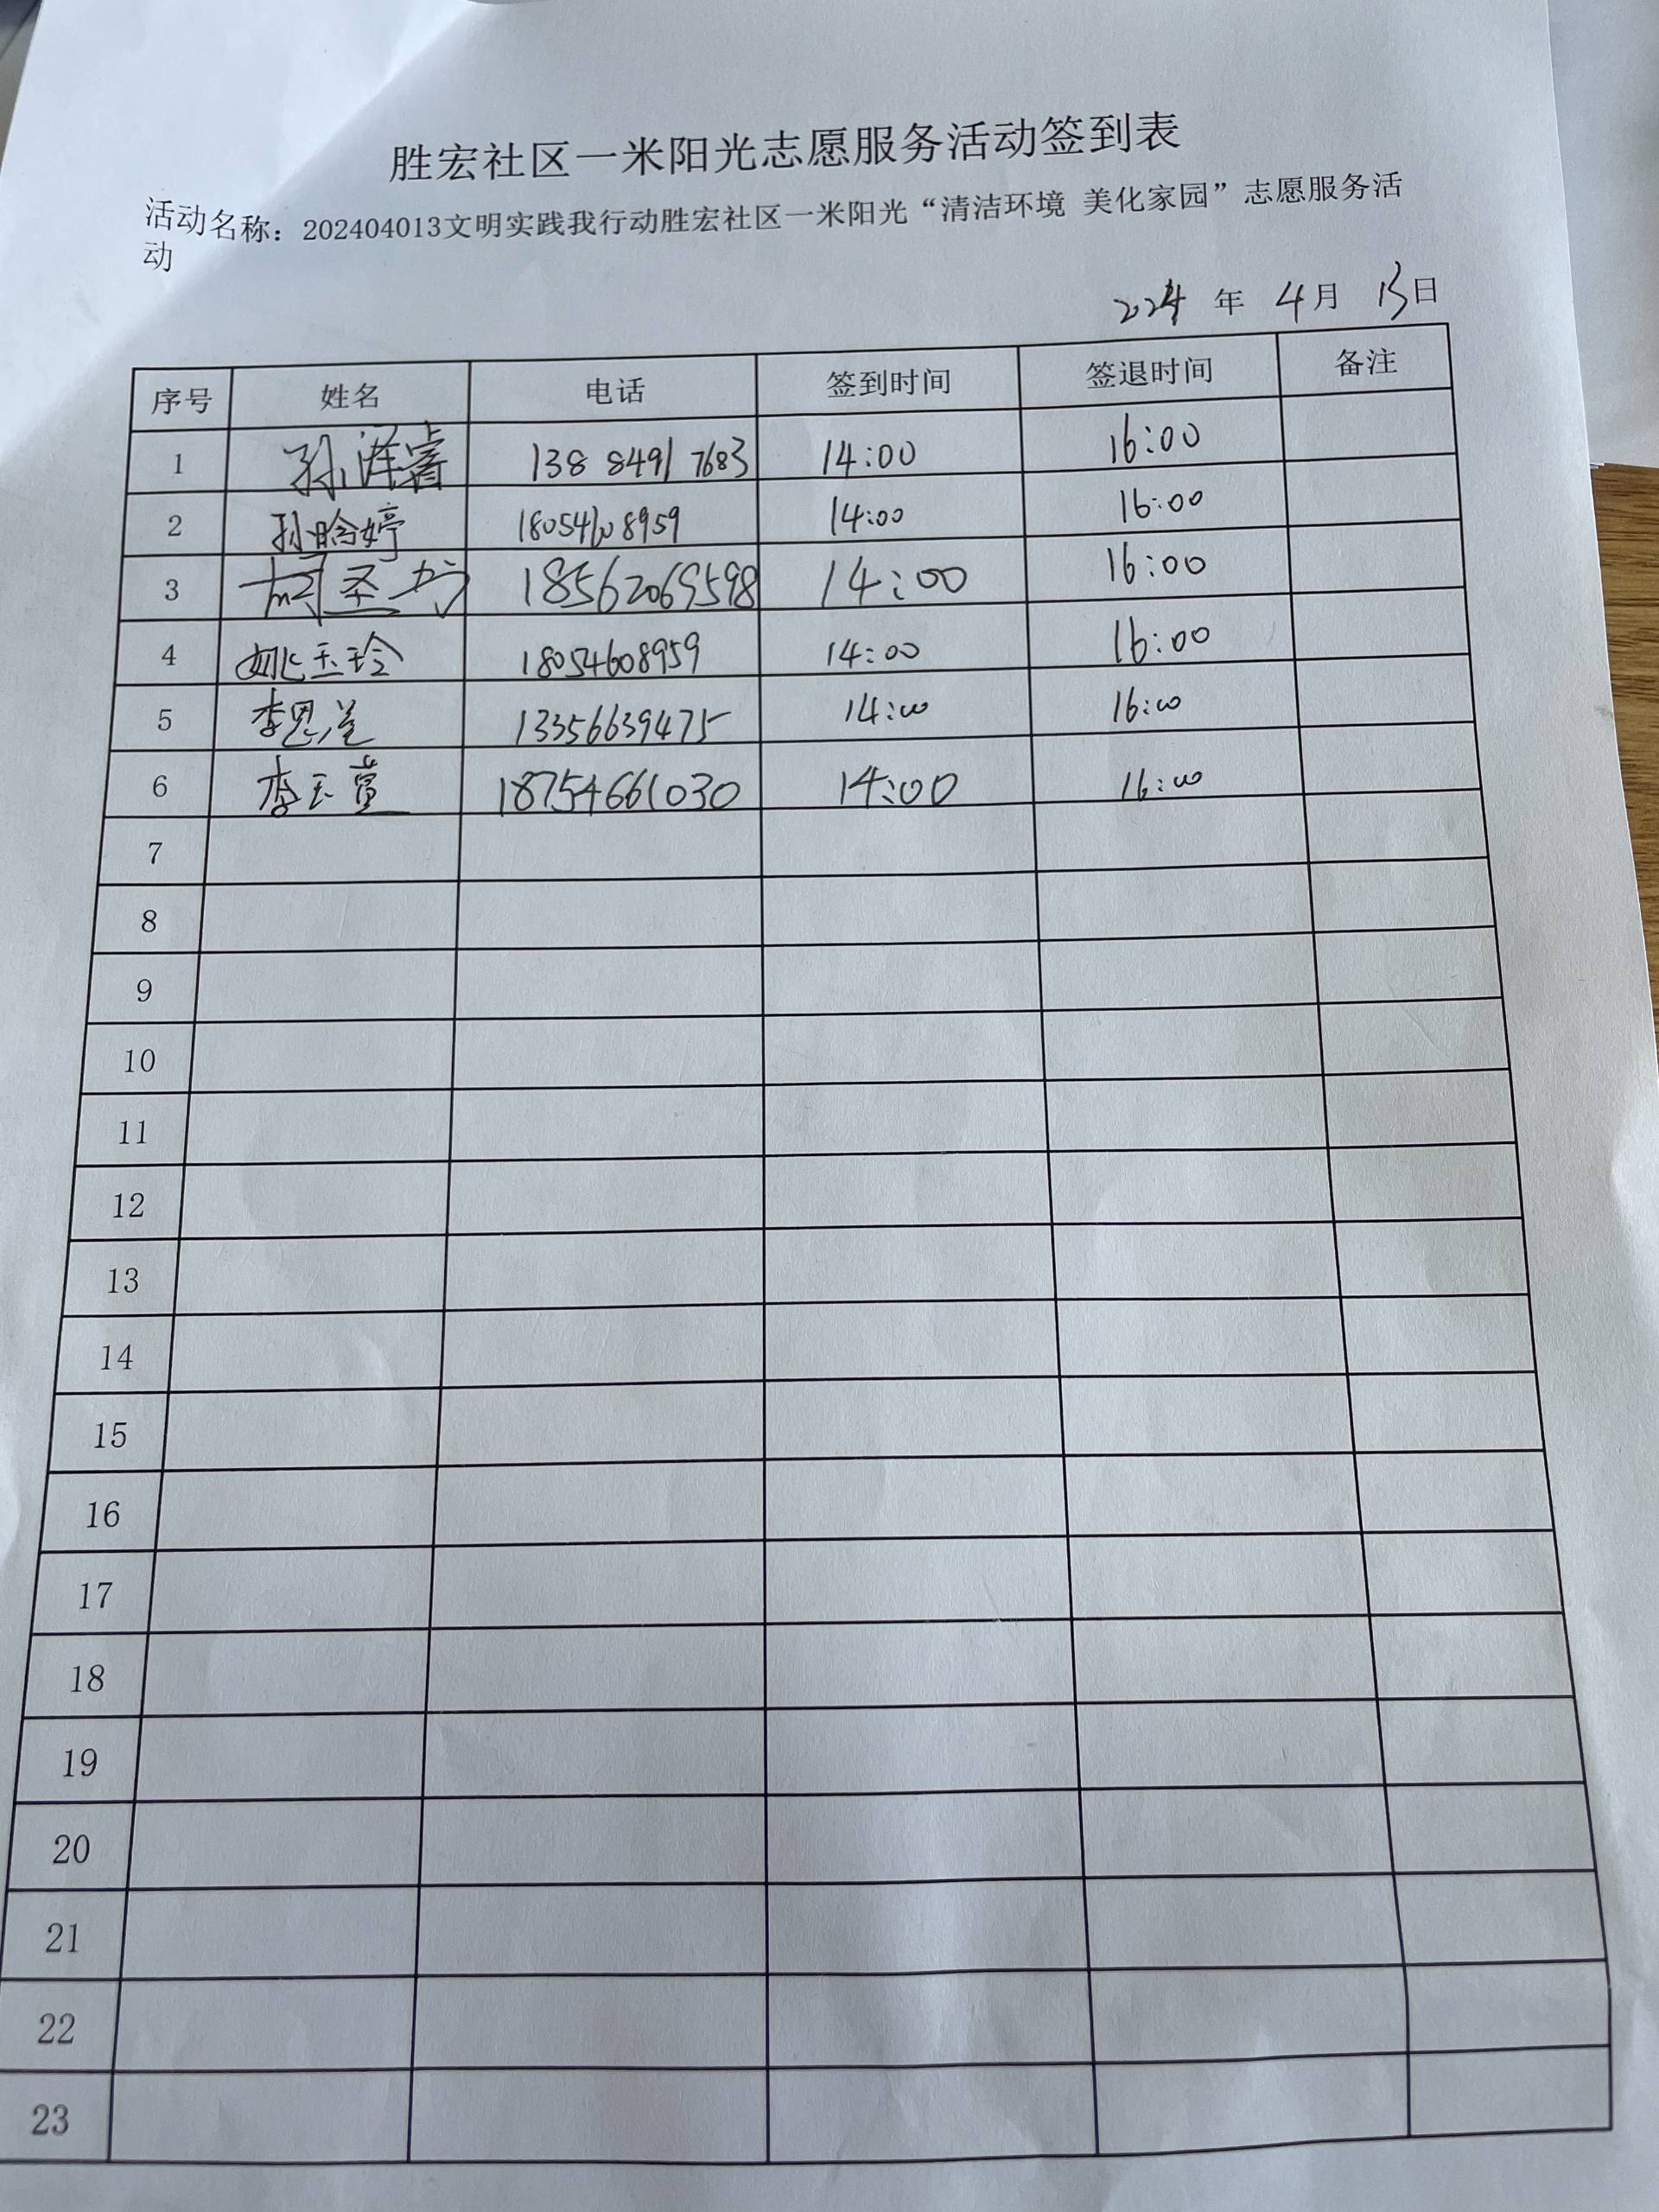 胜宏社区一米阳光志愿服务活动签到表
活动名称：202404013文明实践我行动胜宏社区一米阳光“清洁环境 美化家园”志愿服务活
动
2024 年 4月 13日
序号 姓名 电话 签到时间 签退时间 备注
1 孙泽睿 138 8491 7683 14:00 16:00
2 孙晗婷 18054608959 14:00 16:00
3 18562069598 14:00 16:00
4 姚玉玲 18054608959 14:00 16:00
5 李思 13356639475 14:00 16:00
6 李玉萱 18754661030 14:00 16:00
7
8
9
10
11
12
13
14
15
16
17
18
19
20
21
22
23